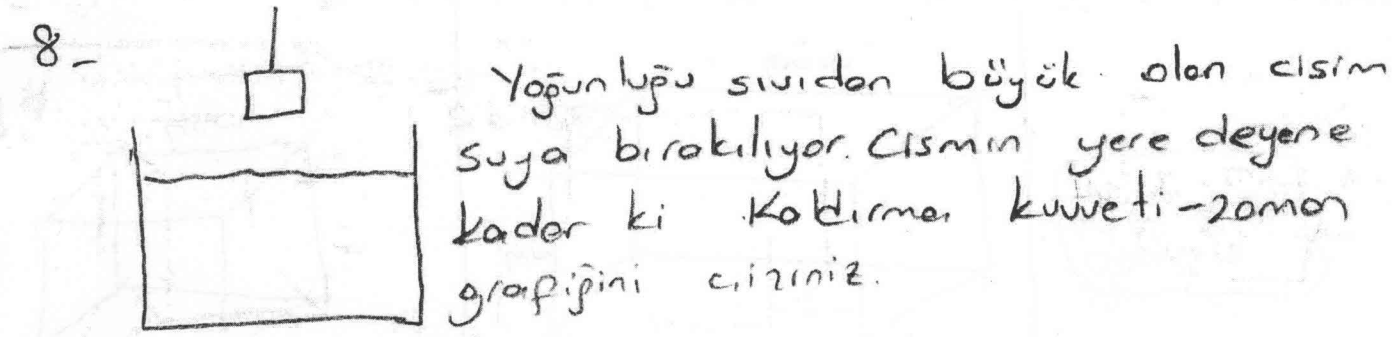 8-
Yoğunluğu sıvıdan büyük olan cisim
suya bırakılıyor. Cismin yere deyene
kadar ki Kaldırma kuvveti-zaman
grafiğini çiziniz.